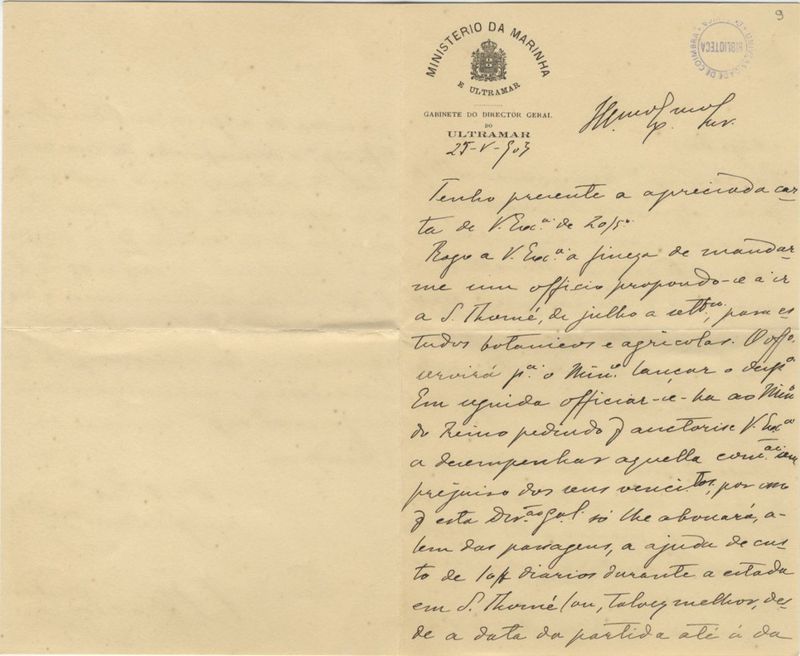 9
MINISTERIO DA MARINHA
E ULTRAMAR
UNIVERSIDADE DE COIMBRA
BIBLIOTECA
GABINETE DO DIRECTOR GERAL
DO
ULTRAMAR
25-V-903
Tenho presente a apreciada car-
ta de V. Exª. de 20/5º
Rogo a V. Exª. a fineza de mandar-
me um officio propondo-se a ir
a S. Thomé, de julho a settbro, para es-
tudos botanicos e agricolas. O offº
servirá pª. o Minº. lançar o despº
Em seguida officiar-se-ha ao Minº
do Reino pedindo q auctorise V. Exª
a desempenhar aquella comªm sem
prejuiso dos seus vencitos, por
q esta Dirão Gal. só lhe abonará, a-
lem das passagens, a ajuda de cus-
to de 10$ diarios durante a estada
em S. Thomé (ou, talvez melhor, des-
de a data da partida até á da